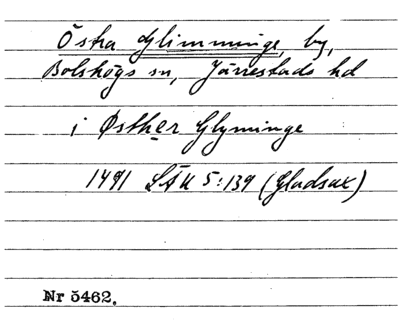 Östra Glimminge, by,
Bolshögs sn, Järrestads hd
i Østher Glyminge
1491 LÄU 5:139 (Gladsax)
Nr 5462.